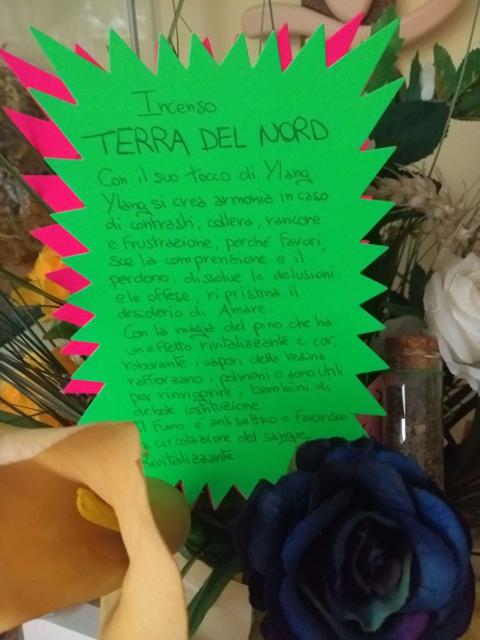 Incenso
TERRA DEL NORD
Con il suo tocco di Ylang
Ylang si crea armonia in caso
di contrasti, collera, rancore
e frustrazione, perché favori,
sce la comprensione e il
perdono, dissolve le delusioni
e le offese, ripristina il
desiderio di Amare.
Con la magia del pino che ha
un effetto rivitalizzante e cor,
roborante i vapori della resina
rafforzano i polmoni e sono utili
per rinvigorire i bambini di
debole costituzione.
Il fumo è antisettico e favorisce
la circolazione del sangue
Rivitalizzante.